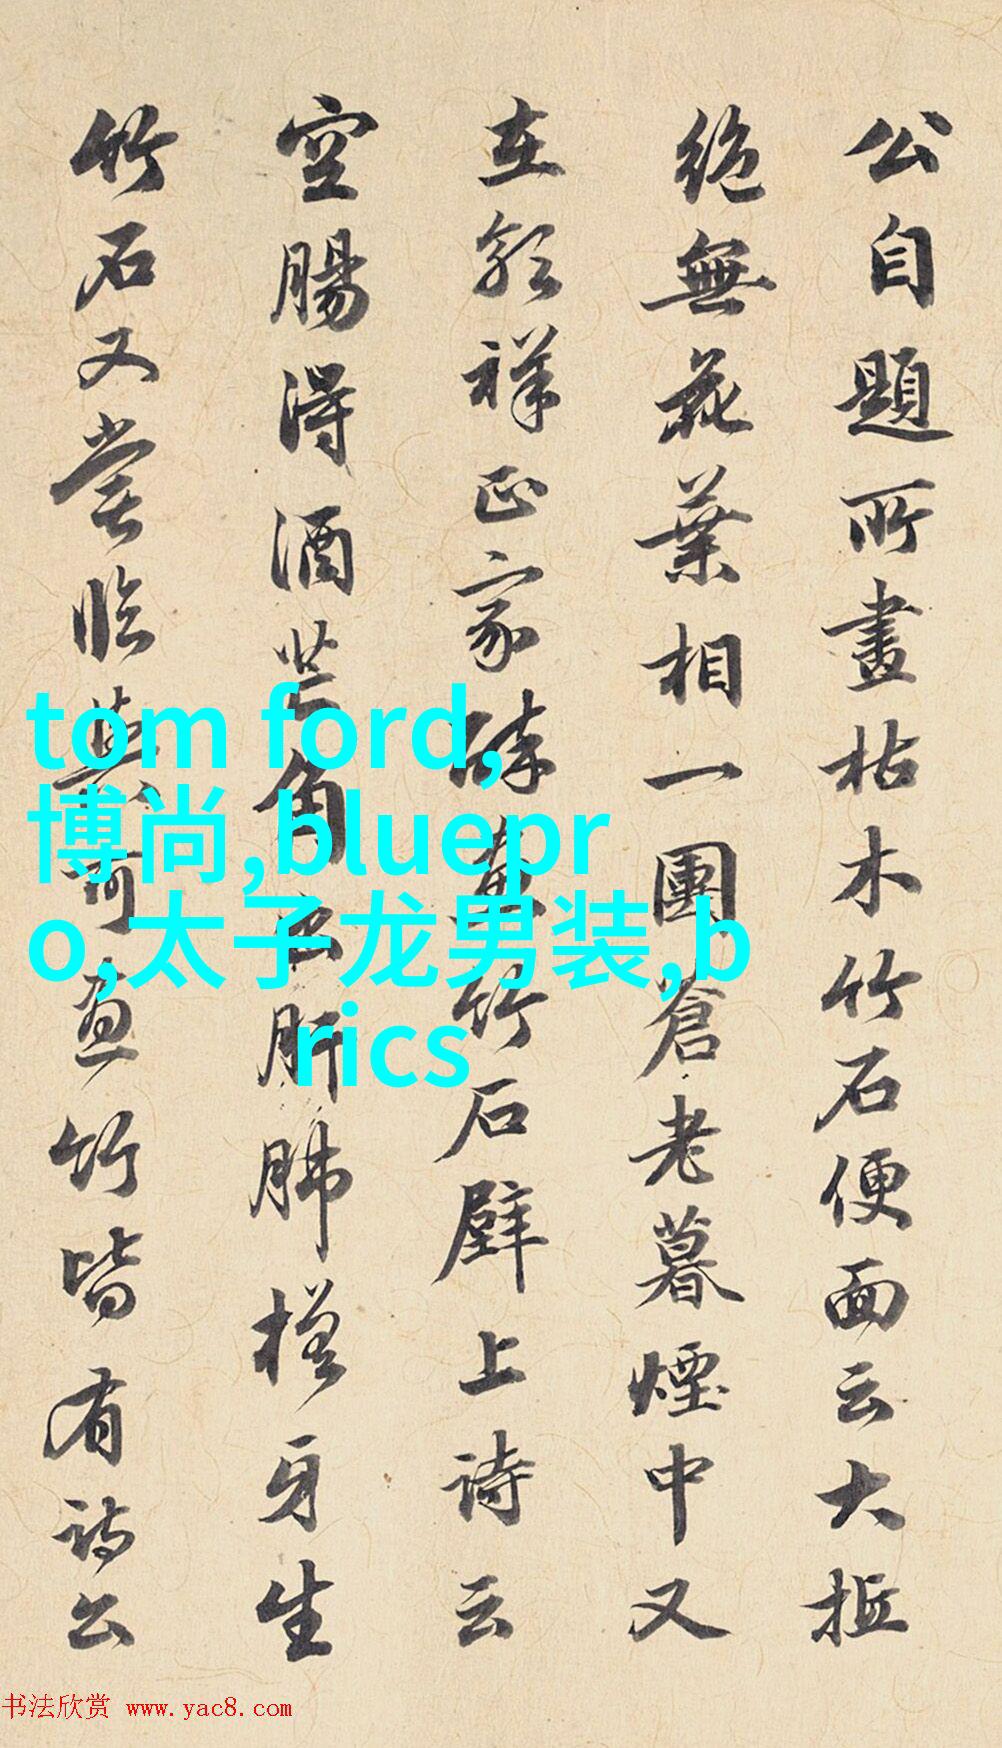 公自題所畫枯木竹石便面云大抵
絶無花葉相一團蒼老暮煙中又
在郭祥正家醉畫竹石壁上詩云
空腸得酒芒角出肝肺槎牙生
竹石又嘗臨與可畫竹皆有詩公
tom ford,
博尚,bluepr
o,太子龙男装,b
rics
书法欣赏 www.yac8.com